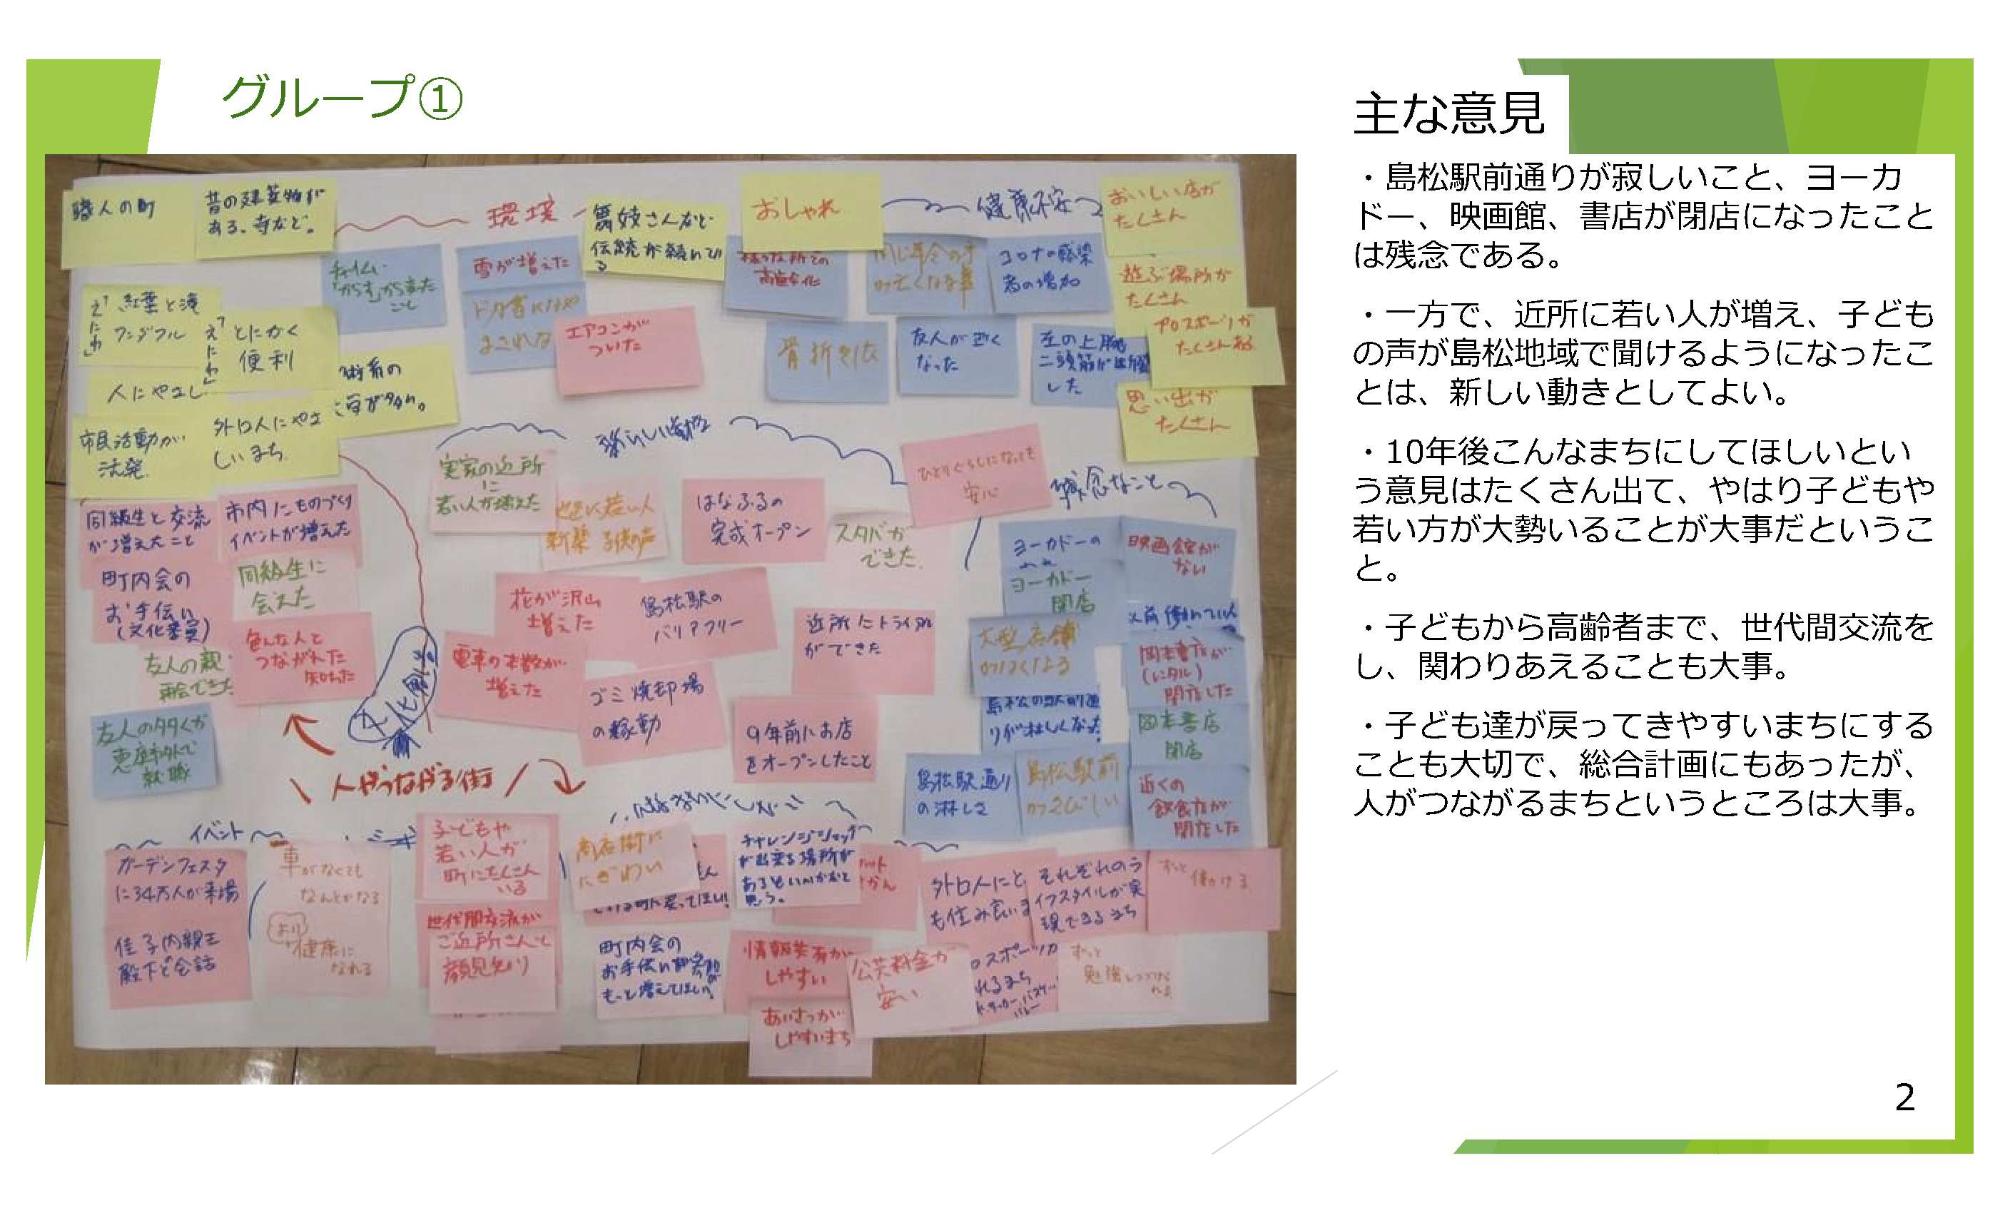 グループ①
主な意見
・島松駅前通りが寂しいこと、ヨーカ
ドー、映画館、書店が閉店になったこと
は残念である。
・一方で、近所に若い人が増え、子ども
の声が島松地域で聞けるようになったこ
とは、新しい動きとしてよい。
・10年後こんなまちにしてほしいとい
う意見はたくさん出て、やはり子どもや
若い方が大勢いることが大事だというこ
と。
・子どもから高齢者まで、世代間交流を
し、関わりあえることも大事。
・子ども達が戻ってきやすいまちにする
ことも大切で、総合計画にもあったが、
人がつながるまちというところは大事。
2
職人の町
昔の建築物が
ある、寺など。
環境
舞妓さんなど
伝統が続いてい
る
おしゃれ
健康不安
おいしい店が
たくさん
雪が増えた
コロナの感染
者の増加
遊ぶ場所が
たくさん
エアコンが
ついた
骨折をした
友人が亡く
なった
プロスポーツが
たくさんある
思い出が
たくさん
とにかく
便利
人にやさし
市民活動が
活発
外国人にやさ
しいまち
実家の近所
に
若い人が増えた
はなふるの
完成オープン
スタバが
できた
ひとりぐらしになっても
安心
残念なこと
同級生と交流
が増えたこと
市内にものづくり
イベントが増えた
町内会の
お手伝い
(文化委員)
同級生に
会えた
色んな人と
つながれた
知れた
友人の親
再会できた
友人の多くが
恵庭市外で
就職
花が沢山
増えた
島松駅の
バリアフリー
近所にトライアル
ができた
電車の本数が
増えた
ゴミ焼却場
の稼動
9年前にお店
をオープンしたこと
ヨーカドーの
ヨーカドー
閉店
映画館が
ない
大型店舗
がなくなる
岡本書店が
(レンタル)
閉店した
岡本書店
閉店
島松駅通り
の淋しさ
島松駅前
がさびしい
近くの
飲食店が
閉店した
人がつながる街
イベント
ガーデンフェスタ
に34万人が来場
佳子内親王
殿下と会話
車がなくても
なんとかなる
より
健康に
なれる
子どもや
若い人が
町にたくさん
いる
世代間交流が
ご近所さんと
顔見知り
商店街に
にぎわい
チャレンジショップ
が出来る場所が
あるといいかなと
思う。
町内会の
お手伝い
もっと増えてほしい
情報共有が
しやすい
あいさつが
しやすいまち
公共料金が
安い
外国人にと
も住み良いま
それぞれのラ
イフスタイルが実
現できるまち
ずっと
働ける
ずっと
勉強しつづけら
れる